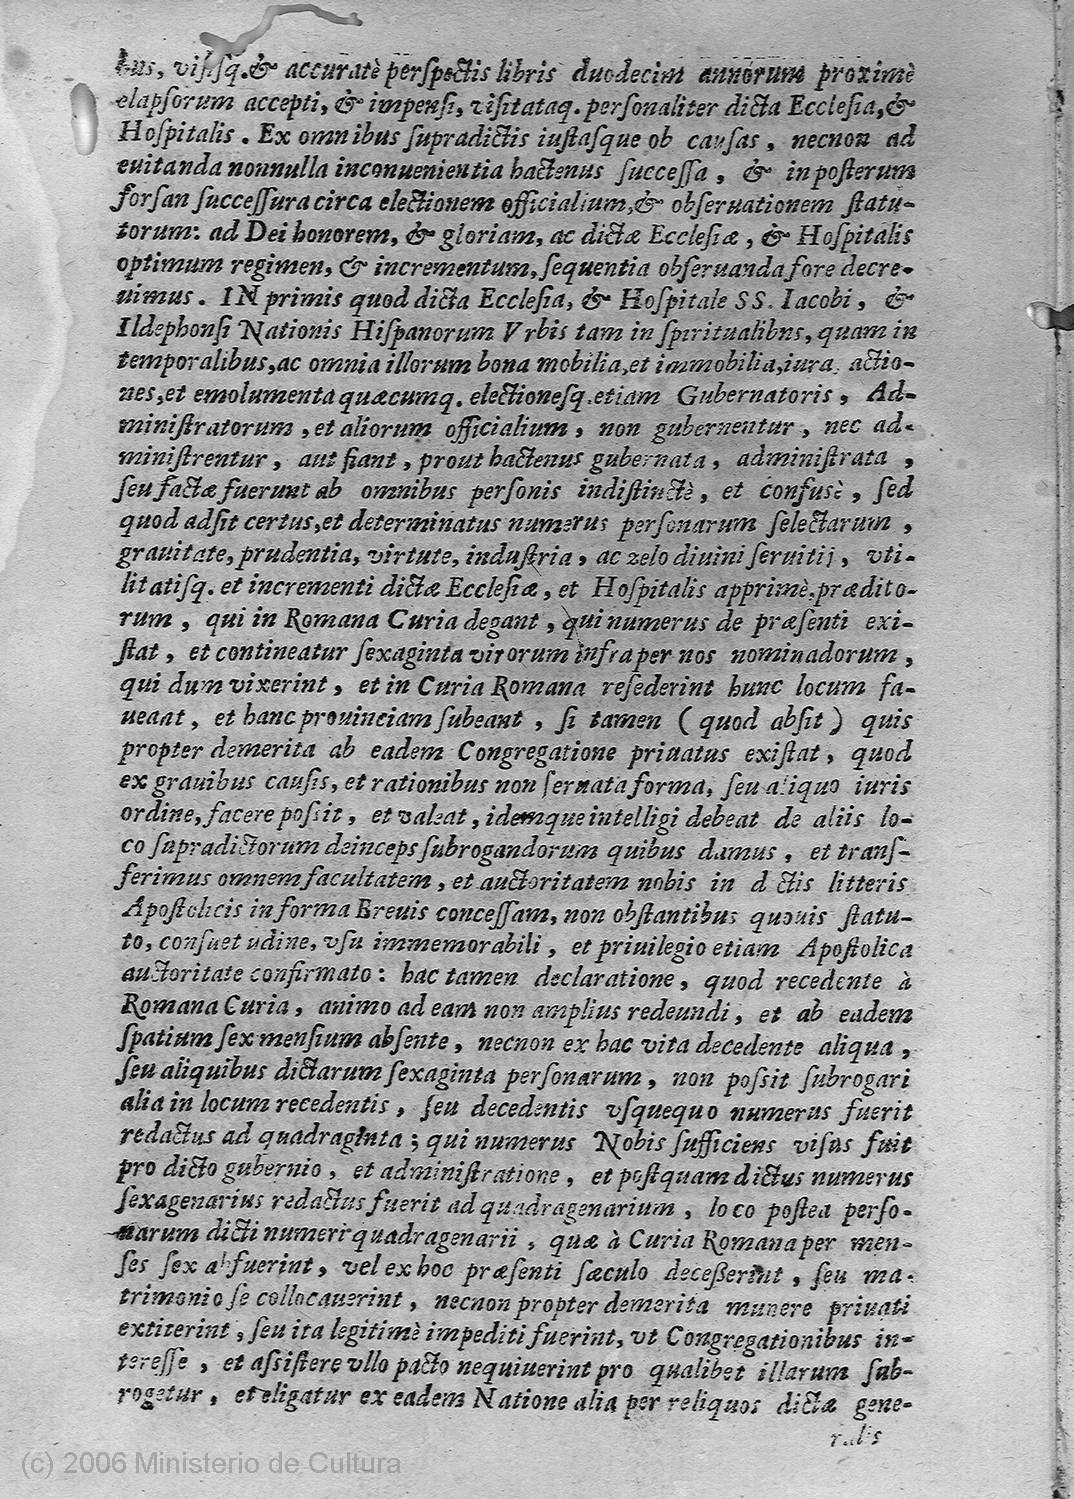 bus, visisq. & accuratè perspectis libris duodecim annorum proximè
elapsorum accepti, & impensi, visitataq. personaliter dicta Ecclesia, &
Hospitalis. Ex omnibus supradictis iustasque ob causas, necnon ad
euitanda nonnulla inconuenientia hactenus successa, & in posterum
forsan successura circa electionem officialium, & obseruationem statu-
torum: ad Dei honorem, & gloriam, ac dictæ Ecclesiæ, & Hospitalis
optimum regimen, & incrementum, sequentia obseruanda fore decre-
uimus. IN primis quod dicta Ecclesia, & Hospitale SS. Iacobi, &
Ildephonsi Nationis Hispanorum Vrbis tam in spiritualibns, quam in
temporalibus, ac omnia illorum bona mobilia, et immobilia, iura, actio-
nes, et emolumenta quæcumq. electionesq. etiam Gubernatoris, Ad-
ministratorum, et aliorum officialium, non gubernentur, nec ad-
ministrentur, aut fiant, prout hactenus gubernata, administrata,
seu factæ fuerunt ab omnibus personis indistinctè, et confusè, sed
quod adsit certus, et determinatus numerus personarum selectarum,
grauitate, prudentia, virtute, industria, ac zelo diuini seruitij, vti-
litatisq. et incrementi dictæ Ecclesiæ, et Hospitalis apprimè, prædito-
rum, qui in Romana Curia degant, qui numerus de præsenti exi-
stat, et contineatur sexaginta virorum infra per nos nominadorum,
qui dum vixerint, et in Curia Romana resederint hunc locum fa-
ueant, et hanc prouinciam subeant, si tamen (quod absit) quis
propter demerita ab eadem Congregatione priuatus existat, quod
ex grauibus causis, et rationibus non seruata forma, seu aliquo iuris
ordine, facere possit, et valeat, idemque intelligi debeat de aliis lo-
co supradictorum deinceps subrogandorum quibus damus, et trans-
ferimus omnem facultatem, et auctoritatem nobis in dictis litteris
Apostolicis in forma Breuis concessam, non obstantibus quouis statu-
to, consuetudine, vsu immemorabili, et priuilegio etiam Apostolica
auctoritate confirmato: hac tamen declaratione, quod recedente à
Romana Curia, animo ad eam non amplius redeundi, et ab eadem
spatium sex mensium absente, necnon ex hac vita decedente aliqua,
seu aliquibus dictarum sexaginta personarum, non possit subrogari
alia in locum recedentis, seu decedentis vsquequo numerus fuerit
redactus ad quadraginta; qui numerus Nobis sufficiens visus fuit
pro dicto gubernio, et administratione, et postquam dictus numerus
sexagenarius redactus fuerit ad quadragenarium, loco postea perso-
narum dicti numeri quadragenarii, quæ à Curia Romana per men-
ses sex abfuerint, vel ex hoc præsenti sæculo decesserint, seu ma-
trimonio se collocauerint, necnon propter demerita munere priuati
extiterint, seu ita legitimè impediti fuerint, vt Congregationibus in-
teresse, et assistere vllo pacto nequiuerint pro qualibet illarum sub-
rogetur, et eligatur ex eadem Natione alia per reliquos dictæ gene-
ralis
(c) 2006 Ministerio de Cultura